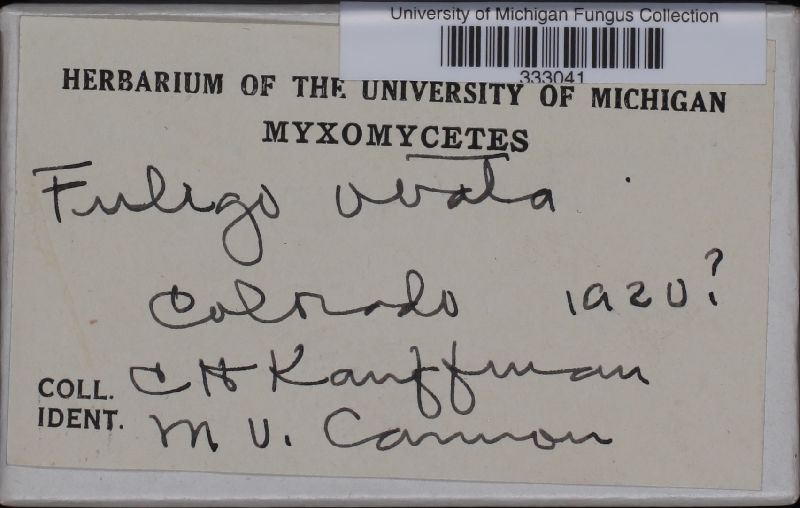 University of Michigan Fungus Collection
333041
HERBARIUM OF THE UNIVERSITY OF MICHIGAN
MYXOMYCETES
Fuligo ovata
Colorado 1920?
COLL. C H Kauffman
IDENT. M V. Cannon